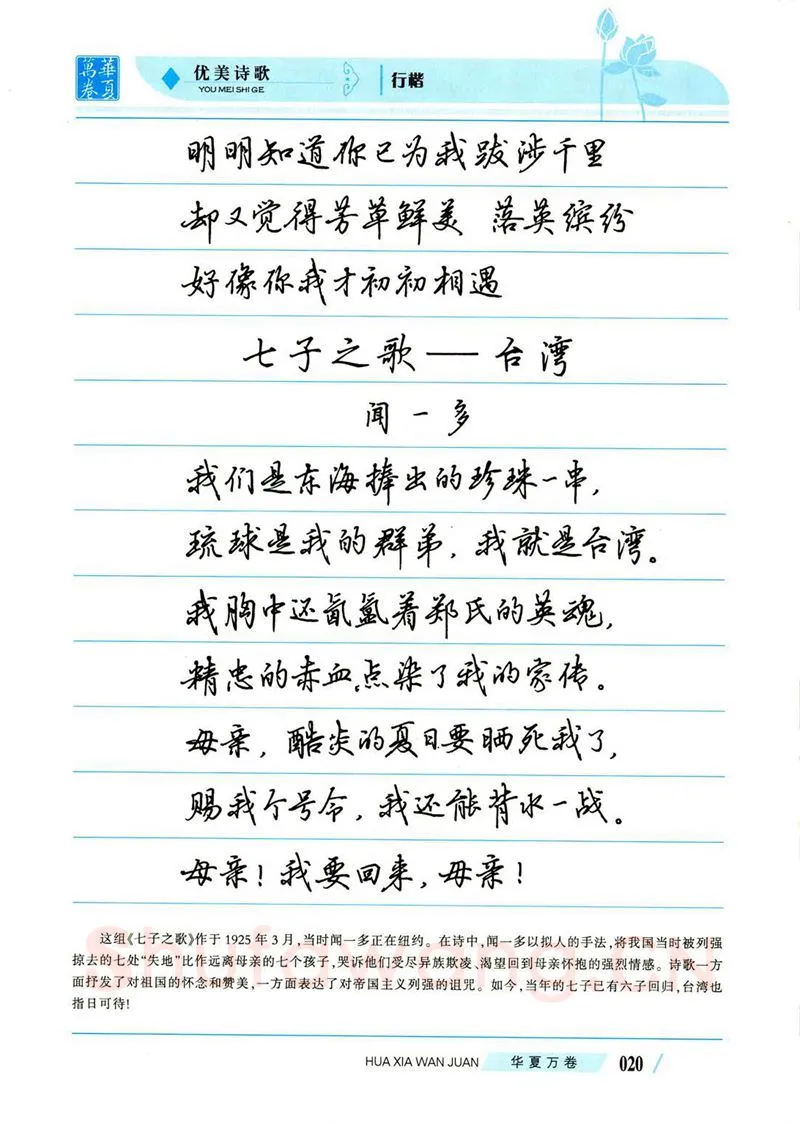 華夏
萬卷
优美诗歌
YOU MEI SHI GE
行楷
明明知道你已为我跋涉千里
却又觉得芳草鲜美 落英缤纷
好像你我才初初相遇
七子之歌——台湾
闻一多
我们是东海捧出的珍珠一串，
琉球是我的群弟，我就是台湾。
我胸中还氤氲着郑氏的英魂，
精忠的赤血点染了我的家传。
母亲，酷炎的夏日要晒死我了，
赐我个号令，我还能背水一战。
母亲！我要回来，母亲！
这组《七子之歌》作于1925年3月，当时闻一多正在纽约。在诗中，闻一多以拟人的手法，将我国当时被列强
掠去的七处“失地”比作远离母亲的七个孩子，哭诉他们受尽异族欺凌、渴望回到母亲怀抱的强烈情感。诗歌一方
面抒发了对祖国的怀念和赞美，一方面表达了对帝国主义列强的诅咒。如今，当年的七子已有六子回归，台湾也
指日可待！
Shufawang.CN
HUA XIA WAN JUAN
华夏万卷
020